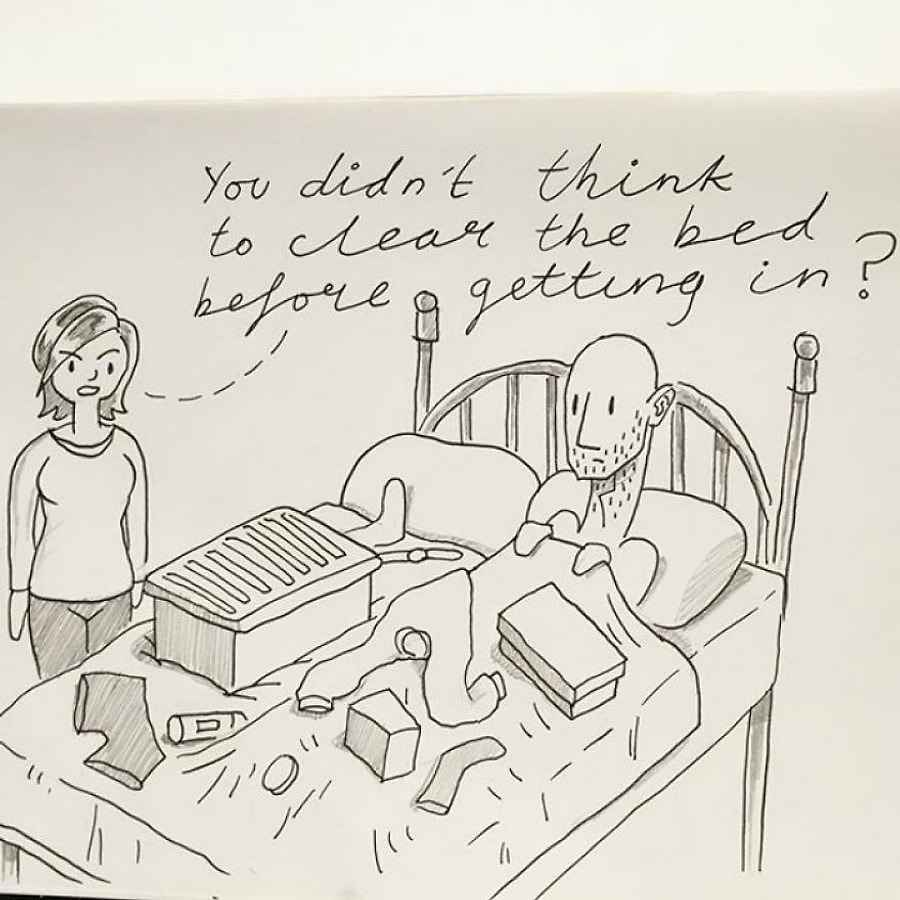 You didn't think
to clear the bed
before getting in?